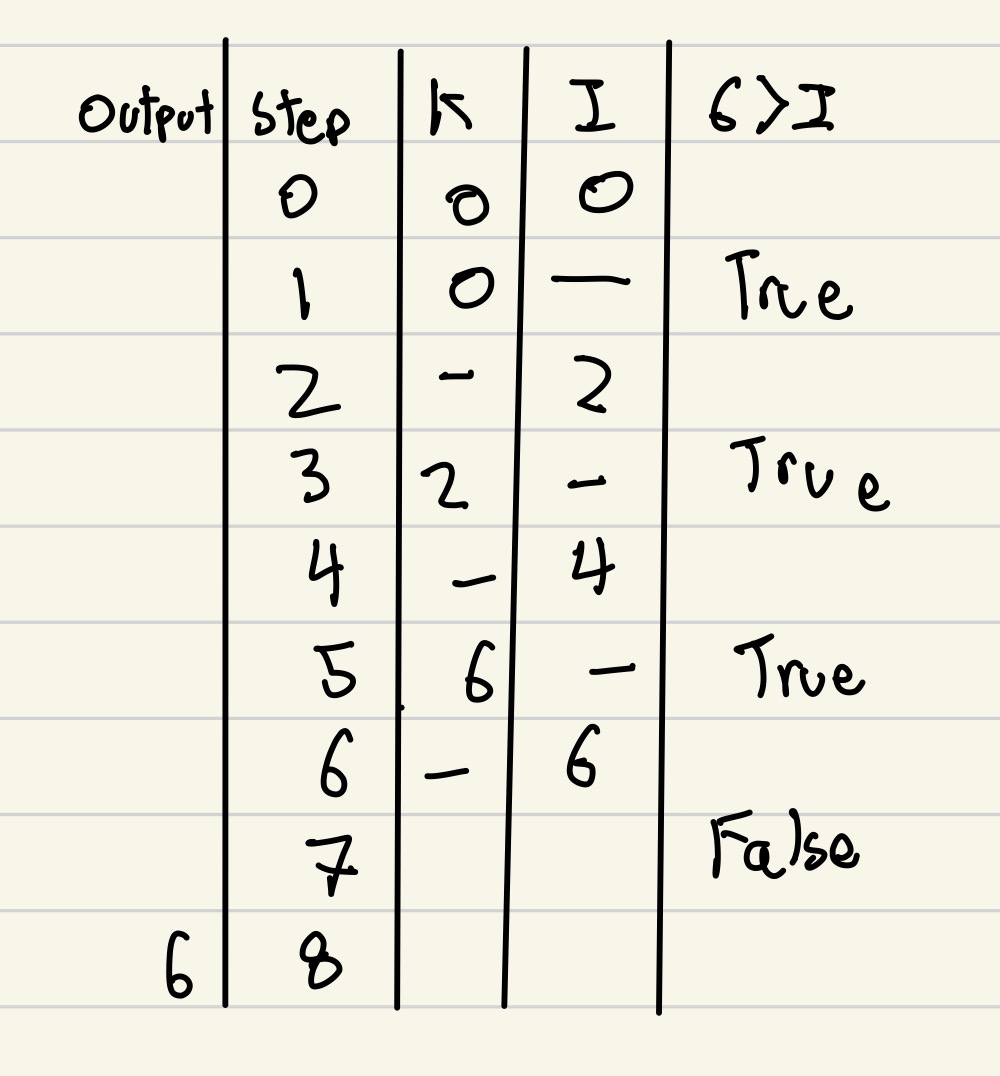 Output Step K I 6>I
0 0 0
1 0 — True
2 - 2
3 2 - True
4 - 4
5 6 - True
6 - 6
7 False
6 8